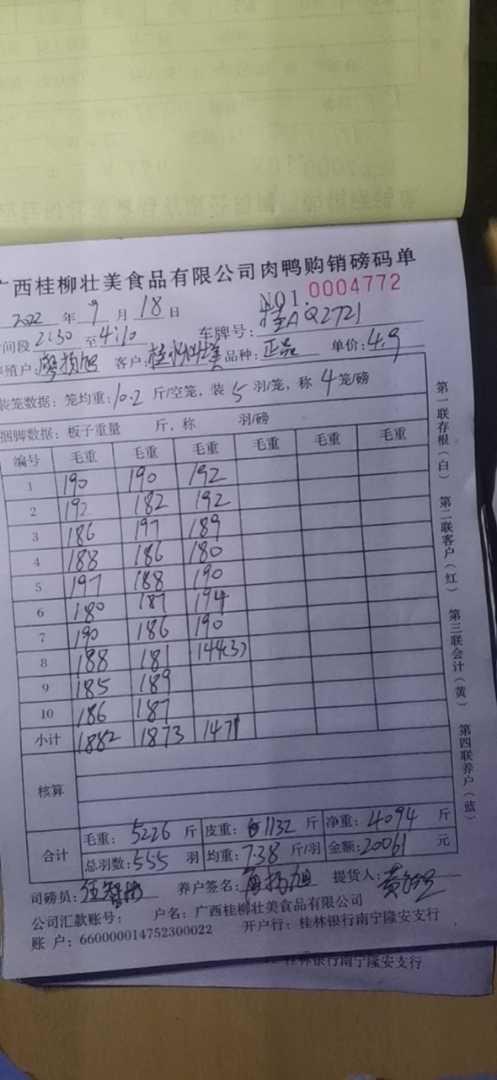 广西桂柳壮美食品有限公司肉鸭购销磅码单
NO1. 0004772
2022 年 9 月 18 日
时间段 2:30 至 4:10 车牌号: 桂AQ2721
养殖户: 廖杨旭 客户: 桂柳壮美 品种: 正品 单价: 4.9
装笼数据: 笼均重: 10.2 斤/空笼, 装 5 羽/笼, 称 4 笼/磅
捆脚数据: 板子重量 斤, 称 羽/磅
编号 毛重 毛重 毛重 毛重 毛重 毛重
1 190 190 192
2 192 182 192
3 186 197 189
4 188 186 180
5 197 188 190
6 180 187 194
7 190 186 190
8 188 181 144(3)
9 185 189
10 186 187
小计 1882 1873 1471
核算
合计 毛重: 5226 斤 皮重: 1132 斤 净重: 4094 斤
总羽数: 555 羽 均重: 7.38 斤/羽 金额: 20061 元
司磅员: 养户签名: 廖杨旭 提货人:
公司汇款账号: 户名: 广西桂柳壮美食品有限公司
账 户: 660000014752300022 开户行: 桂林银行南宁隆安支行
桂林银行南宁隆安支行
第一联存根(白) 第二联客户(红) 第三联会计(黄) 第四联养户(蓝)